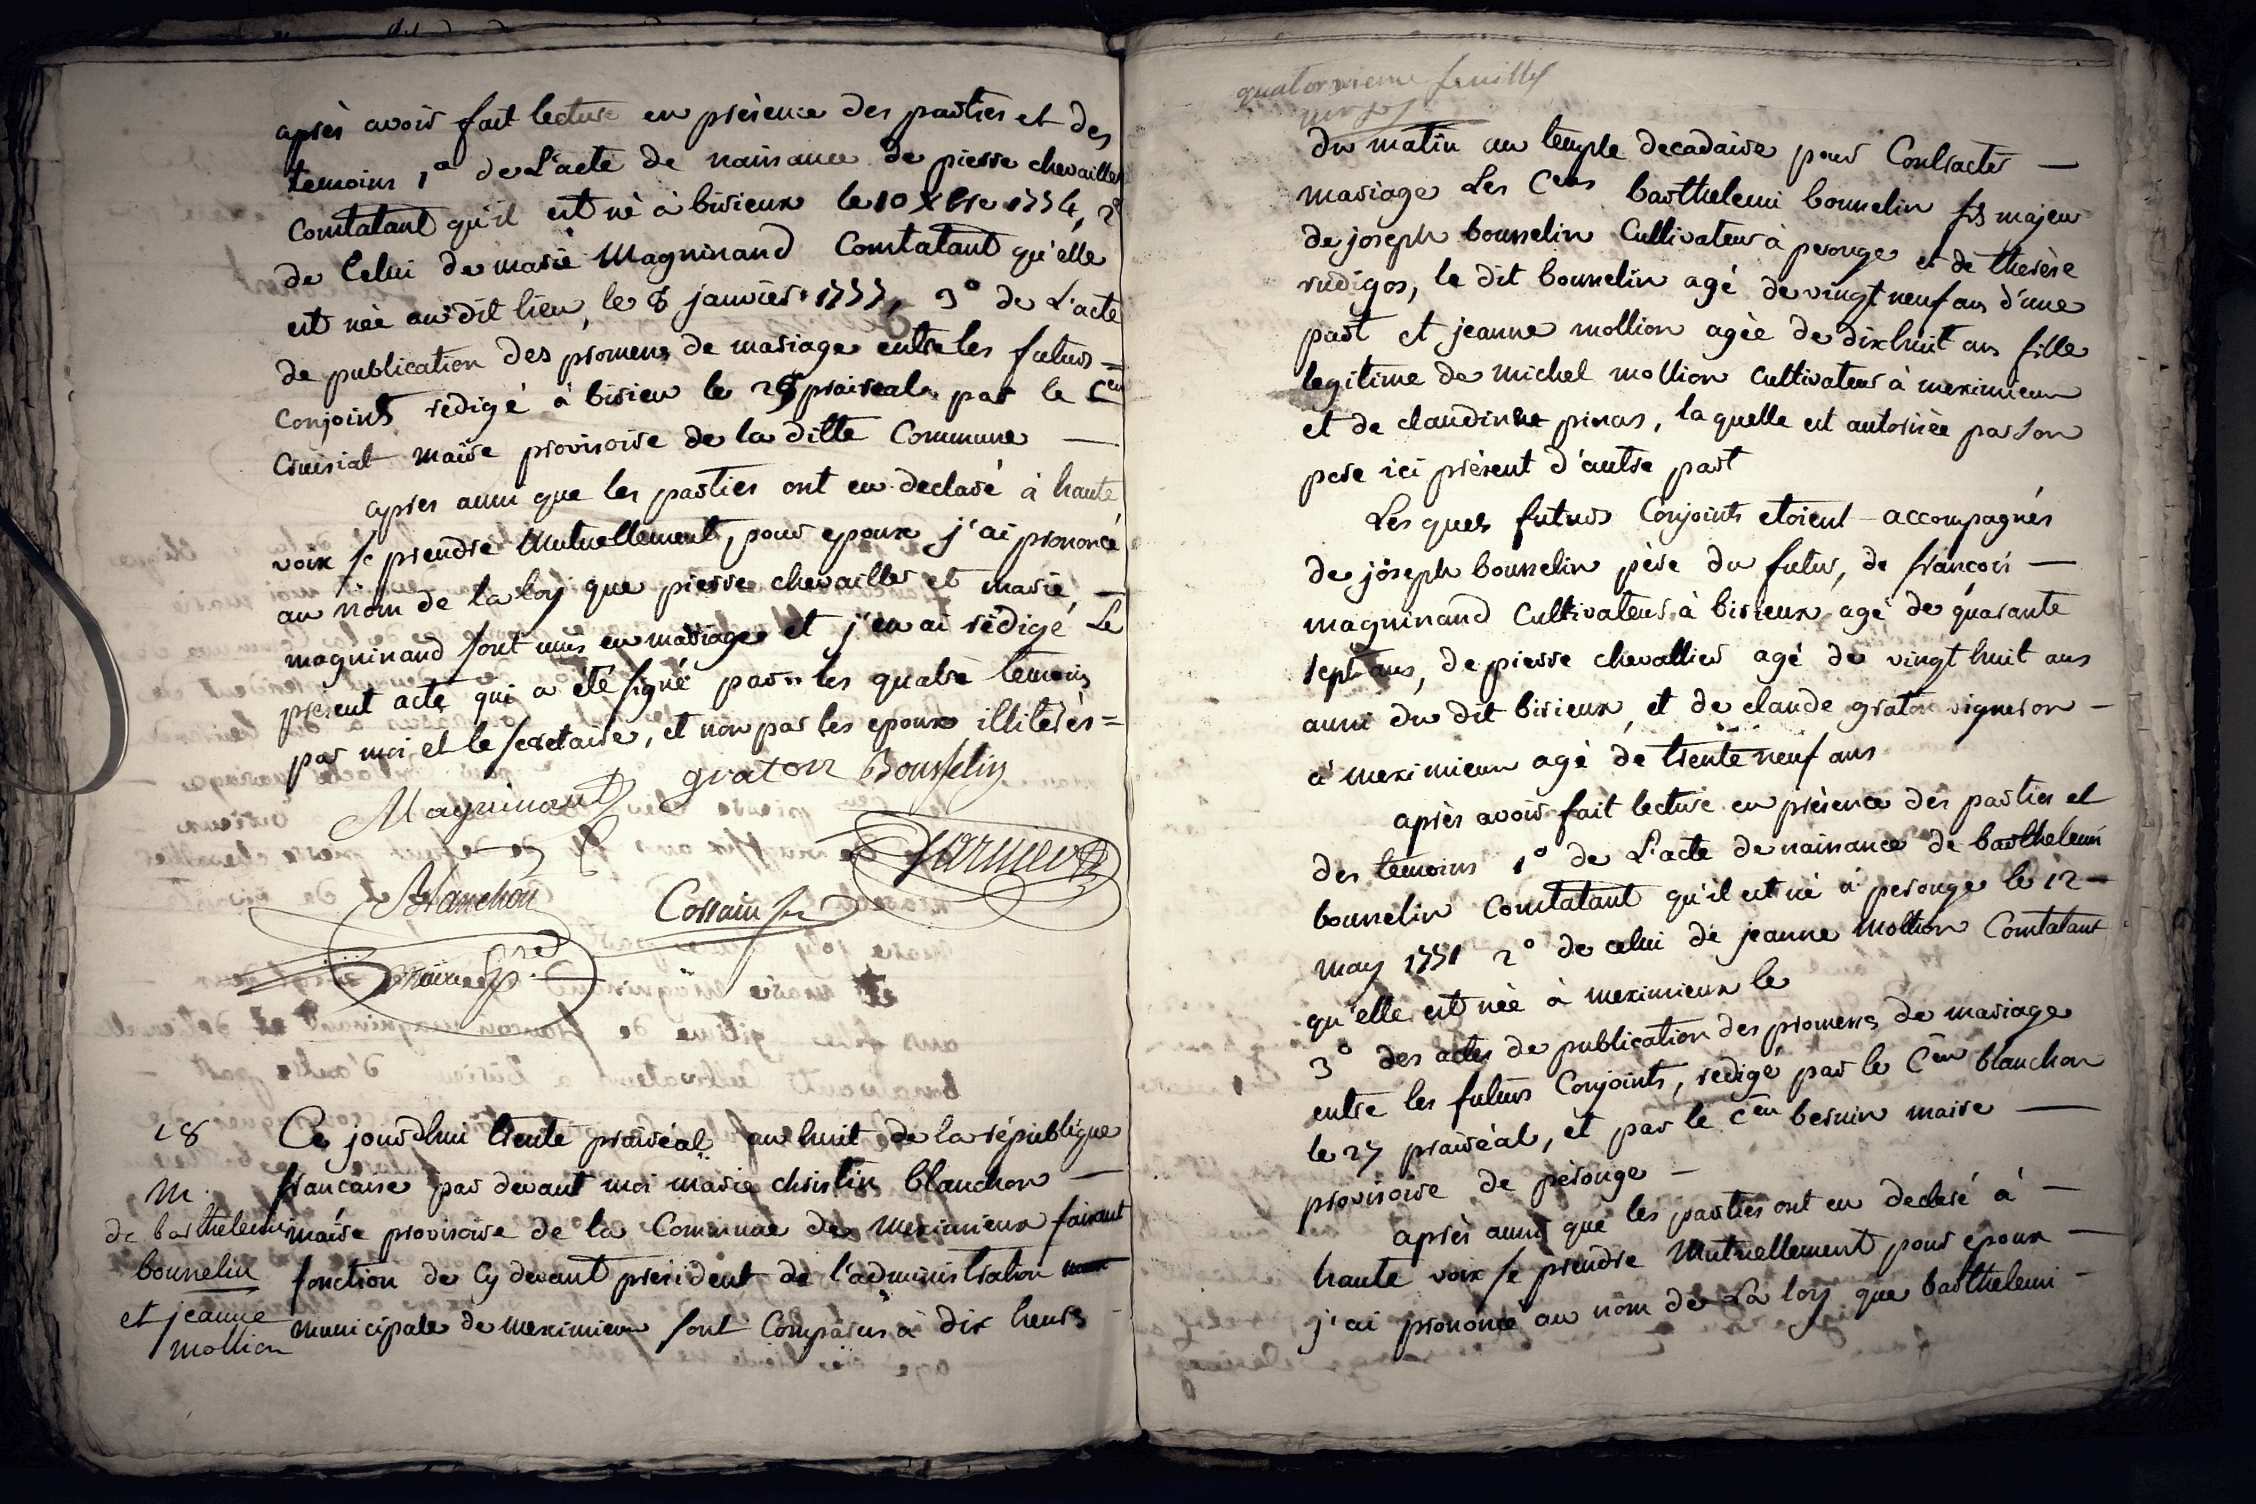 après avoir fait lecture en présence des parties et des
temoins 1° de L'acte de naissance de pierre chevaillier
Constatant qu'il est né à birieux le 10 Xbre 1754, 2°
de Celui de marie Magninand Constatant qu'elle
est née au dit lieu, le 8 janvier 1757, 3° de L'acte
de publication des promesses de mariage entre les futurs =
Conjoints rédigé à birieu le 29 prairéal par le Cen
Cruisiat maire provisoire de la ditte Commune —
après aussi que les parties ont eu declaré à haute
voix se prendre Mutuellement, pour epoux j'ai prononcé
au nom de la loy que pierre chevaillier et marie —
magninand sont unis en mariage et j'en ai rédigé Le
présent acte qui a été signé par les quatre temoins
par moi et le secretaire, et non par les epoux illiterés =
Magninant graton Bousselin
Blanchon Cossain
18 Ce jourd'hui trente prairéal an huit de la république
m. francaise par devant moi marie christin blanchon —
de barthelemi maire provisoire de la Commune de meximieux faisant
bousselin fonction de Cy devant président de l'administration
et jeanne municipale de meximieux sont Comparus à dix heures
mollion
quatorzieme feuillet
du matin au temple decadaire pour Contracter —
mariage Les Cens barthelemi bousselin fils majeur
de joseph bousselin Cultivateur à perouge et de therèse
rudigos, le dit bousselin agé de vingt neuf ans d'une
part et jeanne mollion agée de dixhuit ans fille
legitime de michel mollion cultivateur à meximieux
et de claudinne pinas, la quelle est autorisée par son
pere ici présent d'autre part
Les quels futurs Conjoints etoient accompagnés
de joseph bousselin père du futur, de françois —
magninand Cultivateur à birieux agé de quarante
sept ans, de pierre chevallier agé de vingt huit ans
aussi du dit birieux, et de claude graton vigneron —
à meximieux agé de trente neuf ans
après avoir fait lecture en présence des parties et
des temoins 1° de L'acte de naissance de barthelemi
bousselin Constatant qu'il est né à perouge le 12 —
may 1751 2° de celui de jeanne mollion Constatant
qu'elle est née à meximieux le
3° des actes de publication des promesses de mariage
entre les futurs Conjoints, redigé par le Cen blanchon
le 27 prairéal, et par le cen bernin maire —
provisoire de pérouge —
après aussi que les parties ont eu declaré à —
haute voix se prendre Mutuellement pour epoux —
j'ai prononcé au nom de La loy que barthelemi —